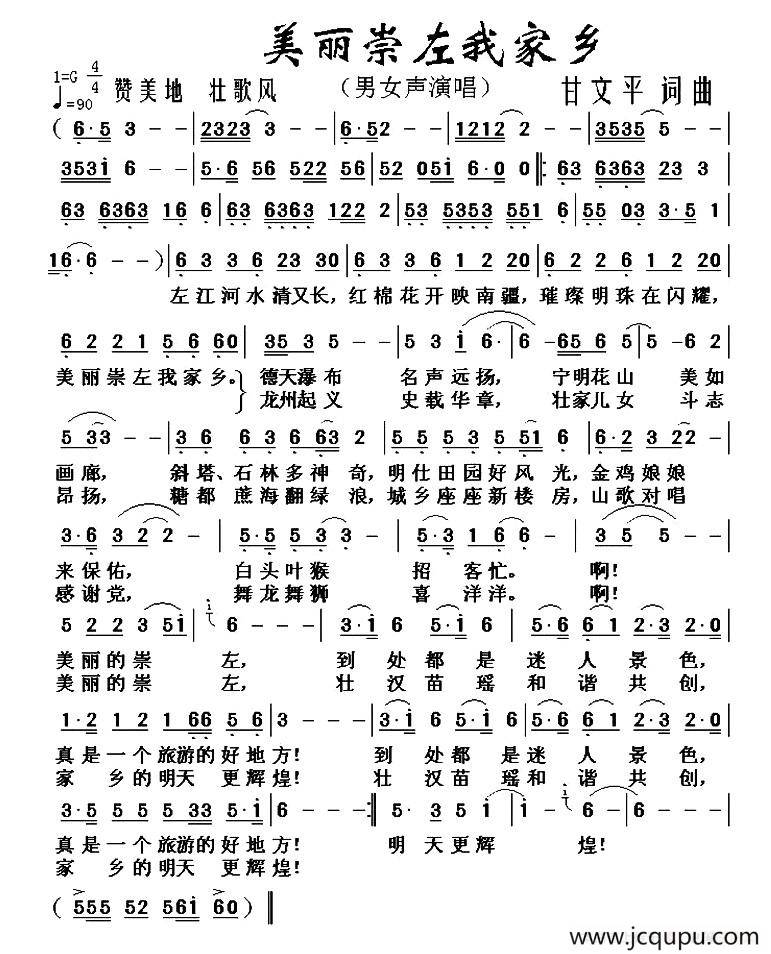 美丽崇左我家乡
1=G 4/4
♩=90 赞美地 壮歌风 （男女声演唱） 甘文平 词曲
( 6·5 3 - - | 2323 3 - - | 6·52 - - | 1212 2 - - | 3535 5 - - |
3531 6 - - | 5·6 56 5522 56 | 52 051 6·0 0 :| 63 6363 23 3 |
63 6363 16 6 | 63 6363 122 2 | 53 5353 551 6 | 55 03 3·5 1 |
16·6 - - ) | 6 3 3 6 23 30 | 6 3 3 6 1 2 20 | 6 2 2 6 1 2 20 |
左江河水清又长，红棉花开映南疆，璀璨明珠在闪耀，
6 2 2 1 5 6 60 | 35 3 5 - | 5 3 i 6· | 6 - 65 6 5 | 5 - 6 2 |
美丽崇左我家乡。德天瀑布 名声远扬， 宁明花山 美如
龙州起义 史载华章， 壮家儿女 斗志
5 33 - - | 3 6 6 3 6 63 2 | 5 5 5 5 51 6 | 6·2 3 22 - |
画廊， 斜塔、石林多神奇，明仕田园好风光，金鸡娘娘
昂扬， 糖都蔗海翻绿浪，城乡座座新楼房，山歌对唱
3·6 3 2 2 - | 5·5 5 3 3 - | 5·3 1 2 - | 3 5 5 - |
来保佑， 白头叶猴 招客忙。 啊！
感谢党， 舞龙舞狮 喜洋洋。 啊！
5 2 2 3 5i | 6 - - - | 3·i 6 5·i 6 | 5·6 61 2·3 2·0 |
美丽的崇 左， 到处都是迷人景色，
美丽的崇 左， 壮汉苗瑶和谐共创，
1·2 1 2 1 66 5 6 | 3 - - - | 3·i 6 5·i 6 | 5·6 61 2·3 2·0 |
真是一个旅游的好地方！ 到处都是迷人景色，
家乡的明天 更辉煌！ 壮汉苗瑶和谐共创，
3·5 5 5 5 33 5·i | 6 - - - :| 5· 3 5 i | i - - | 6 - 6 - - ‖
真是一个旅游的好地方！ 明天更辉 煌！
家乡的明天 更辉煌！
( 555 52 56i 60 ) ‖
www.jcqupu.com